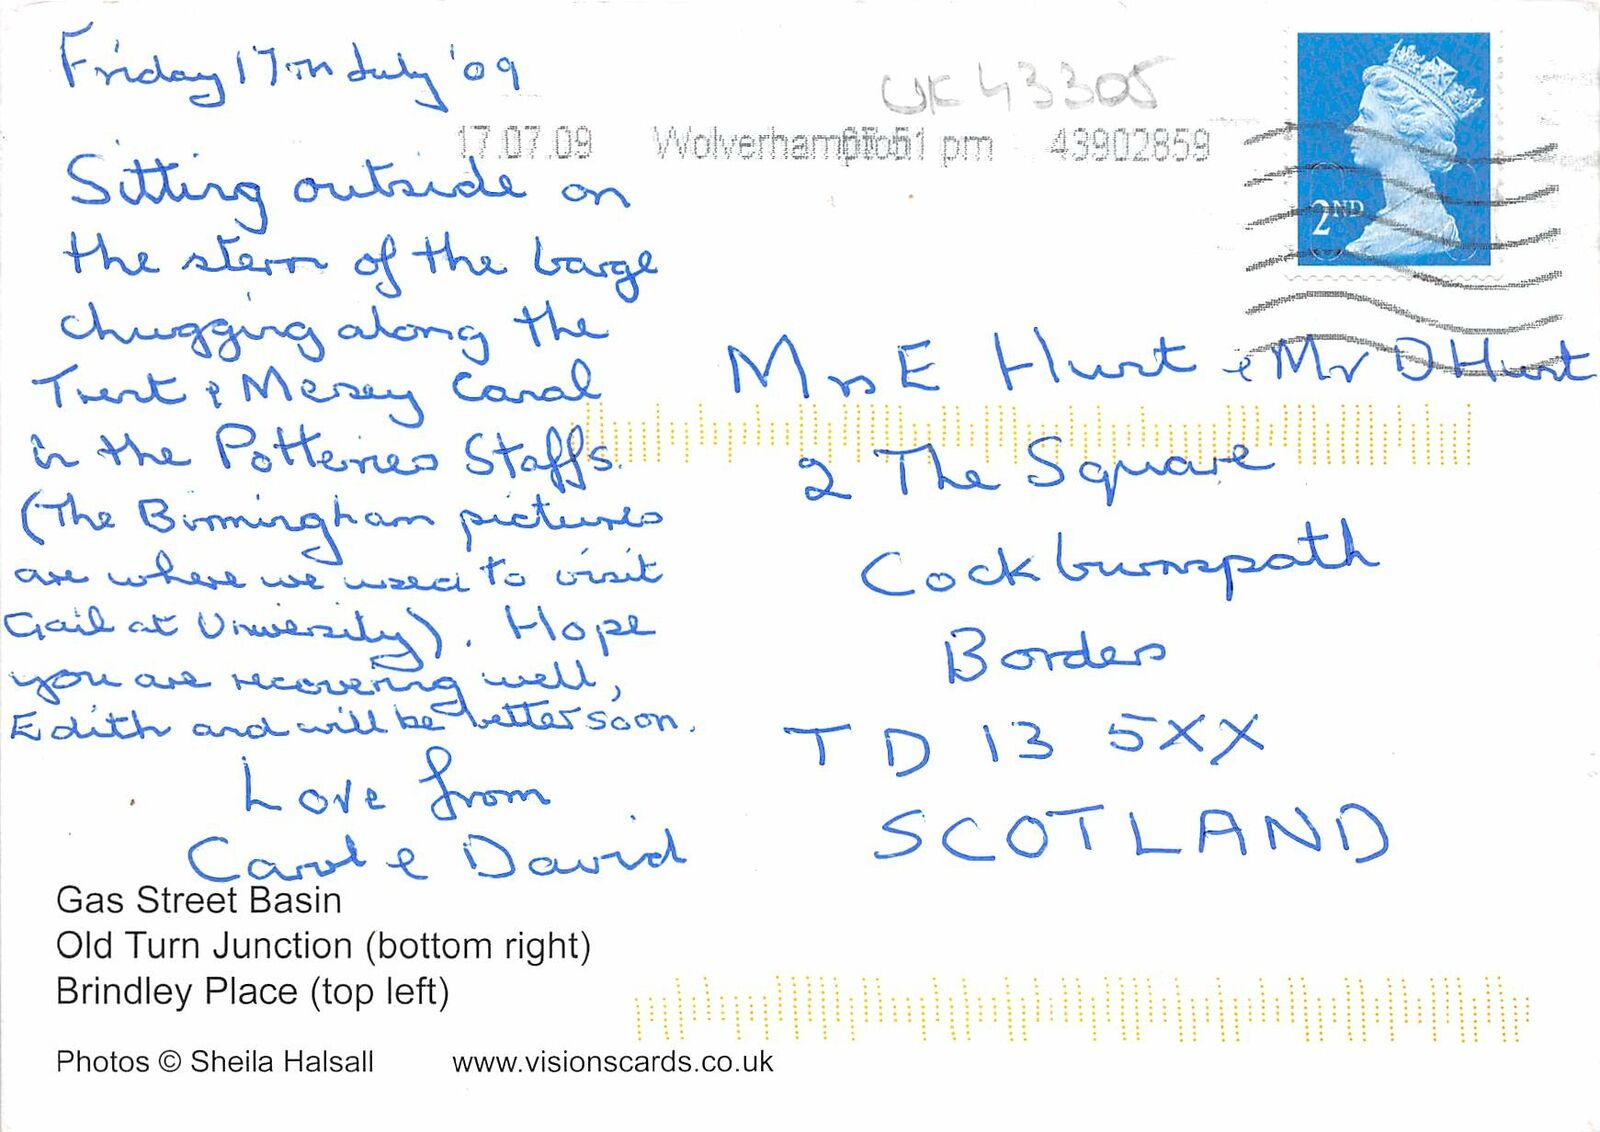 Friday 17th July '09
Sitting outside on
the stern of the barge
chugging along the
Trent & Mersey Canal
in the Potteries Staffs.
(The Birmingham pictures
are where we used to visit
Gail at University). Hope
you are recovering well,
Edith and will be better soon.
Love from
Carol & David
UK43305
17.07.09 Wolverhampton pm 43902859
2ND
Mrs E Hurst & Mr D Hurst
2 The Square
Cockburnspath
Borders
TD13 5XX
SCOTLAND
Gas Street Basin
Old Turn Junction (bottom right)
Brindley Place (top left)
Photos © Sheila Halsall www.visionscards.co.uk